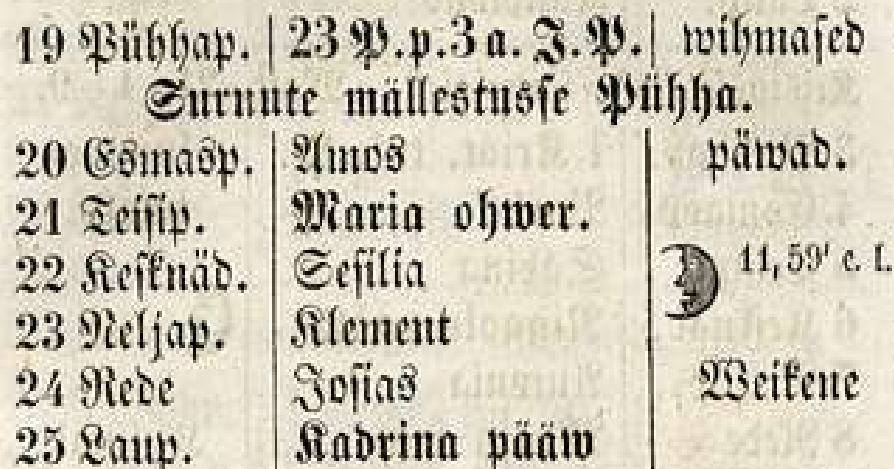 19 Pühhap. 23 P.p.3 a. J.P. wihmased
Surnute mällestusse Pühha.
20 Esmasp. Amos päwad.
21 Teisip. Maria ohwer.
22 Kesknäd. Sesilia 11,59' e. l.
23 Neljap. Klement
24 Rede Josias Weikene
25 Laup. Kadrina pääw